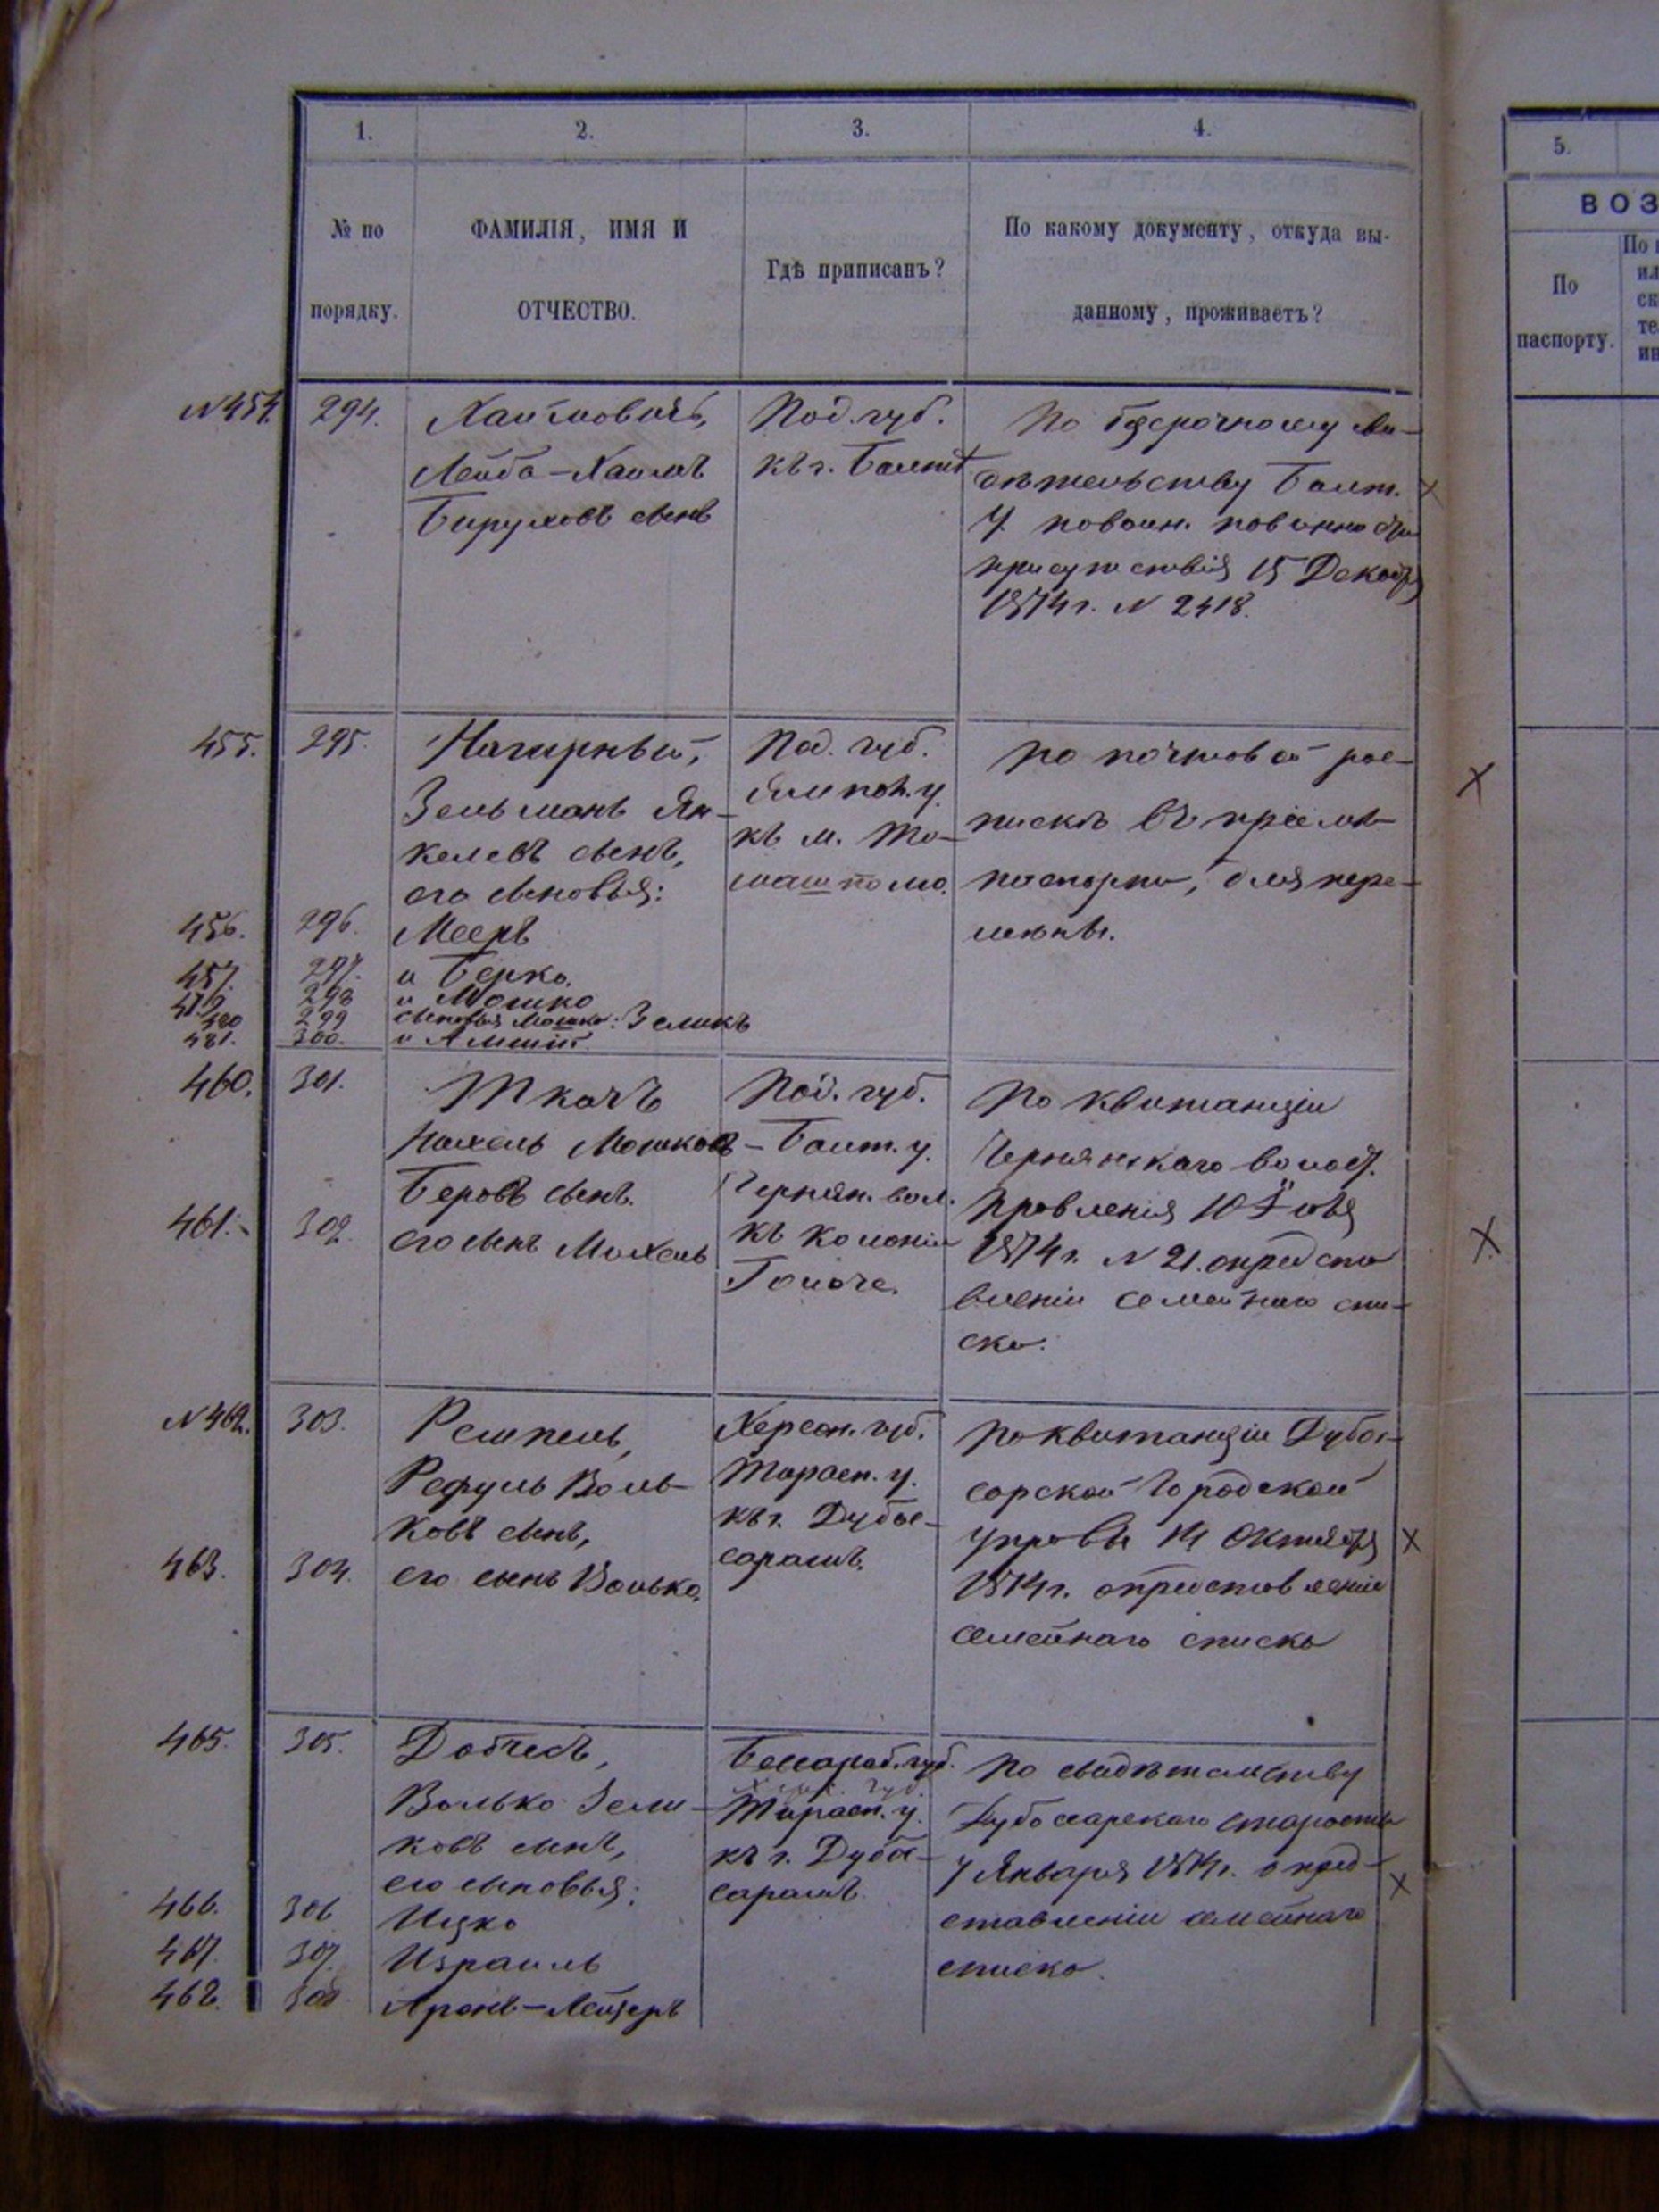 1.
2.
3.
4.
№ по порядку.
ФАМИЛІЯ, ИМЯ И ОТЧЕСТВО.
Гдѣ приписанъ?
По какому документу, откуда вы-
данному, проживаетъ?
5.
ВОЗ
По паспорту.
По
ил
ск
те
ин
N 454.
294.
Хаимовичъ,
Лейба-Хаимъ
Беруховъ сынъ
Под. губ.
къ г. Балтѣ
По безсрочному сви-
дѣтельству Балт.
У. по воин. повинности
присутствія 15 Декабря
1874 г. N 2418.
455.
295.
Нагирный,
Зельманъ Ян-
келевъ сынъ,
его сыновья:
Под. губ.
Ямпол. у.
къ м. То-
машполю.
По почтовой рос-
пискѣ въ пріемѣ
паспорта, для пере-
мѣны.
456.
296.
Мееръ
457.
297.
и Берко.
298
и Мошко
480
299
сыновья Мошко: Зеликъ
481.
300.
и
460.
301.
Ткачъ
Мошковъ-
Беровъ сынъ.
Под. губ.
Балт. у.
Чернян. вол.
къ колоніи
Гоноче.
По квитанціи
Чернянскаго волост.
Правленія 10
1874 г. N 21. о предста
вленіи семейнаго спи-
ска.
461.
302.
его сынъ
N 462.
303.
Рефуль Воль-
ковъ сынъ,
Херсон. губ.
Тирасп. у.
къ г. Дубос-
сарамъ.
По квитанціи Дубос-
сарской Городской
Управы 14 Октября
1874 г. о представленіи
семейнаго списка
463.
304.
его сынъ Волько.
465.
305.
Волько Зели-
ковъ сынъ,
его сыновья:
Бессараб. губ.
Херс. губ.
Тирасп. у.
къ г. Дубос-
сарамъ.
По свидѣтельству
Дубоссарскаго старосты
7 Января 1874 г. о пред-
ставленіи семейнаго
списка.
466.
306
Ицко
467.
307.
Израиль
468.
308
Аронъ-Лейзеръ